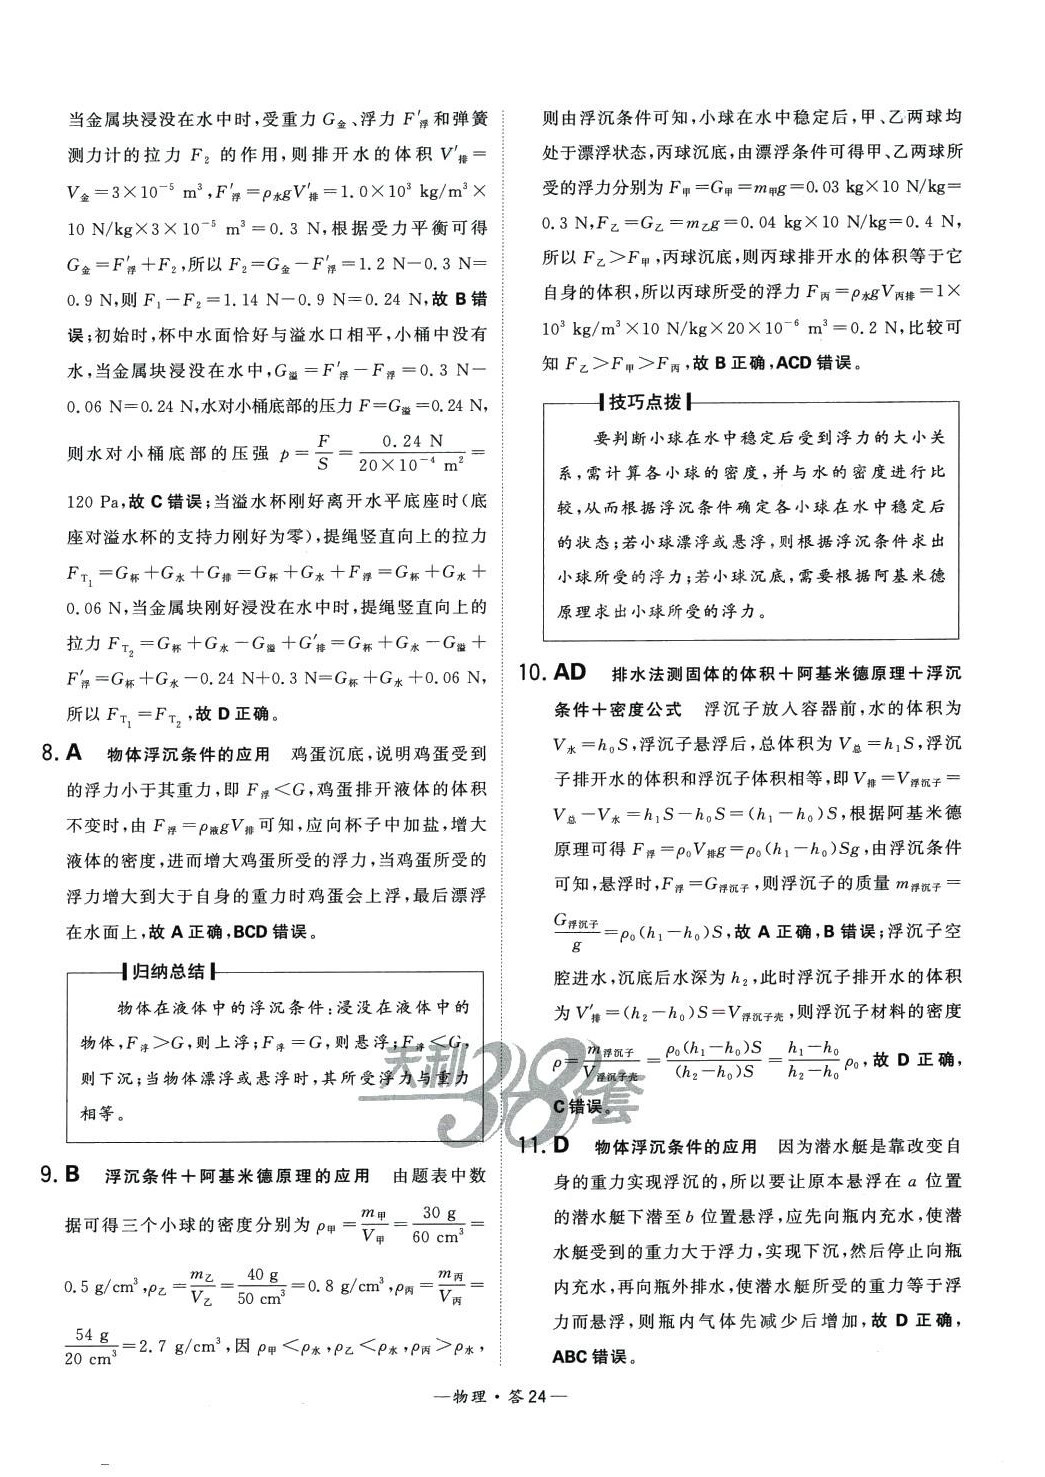 当金属块浸没在水中时,受重力 G金、浮力 F′浮 和弹簧
测力计的拉力 F₂ 的作用,则排开水的体积 V′排=
V金=3×10⁻⁵ m³,F′浮=ρ水gV′排=1.0×10³ kg/m³×
10 N/kg×3×10⁻⁵ m³=0.3 N,根据受力平衡可得
G金=F′浮+F₂,所以 F₂=G金-F′浮=1.2 N-0.3 N=
0.9 N,则 F₁-F₂=1.14 N-0.9 N=0.24 N,故 B 错
误;初始时,杯中水面恰好与溢水口相平,小桶中没有
水,当金属块浸没在水中,G溢=F′浮-F浮=0.3 N-
0.06 N=0.24 N,水对小桶底部的压力 F=G溢=0.24 N,
则水对小桶底部的压强 p=F/S=0.24 N/20×10⁻⁴ m²=
120 Pa,故 C 错误;当溢水杯刚好离开水平底座时(底
座对溢水杯的支持力刚好为零),提绳竖直向上的拉力
F_T₁=G杯+G水+G排=G杯+G水+F浮=G杯+G水+
0.06 N,当金属块刚好浸没在水中时,提绳竖直向上的
拉力 F_T₂=G杯+G水-G溢+G′排=G杯+G水-G溢+
F′浮=G杯+G水-0.24 N+0.3 N=G杯+G水+0.06 N,
所以 F_T₁=F_T₂,故 D 正确。
8. A 物体浮沉条件的应用 鸡蛋沉底,说明鸡蛋受到
的浮力小于其重力,即 F浮<G,鸡蛋排开液体的体积
不变时,由 F浮=ρ液gV排 可知,应向杯子中加盐,增大
液体的密度,进而增大鸡蛋所受的浮力,当鸡蛋所受的
浮力增大到大于自身的重力时鸡蛋会上浮,最后漂浮
在水面上,故 A 正确,BCD 错误。
归纳总结
物体在液体中的浮沉条件:浸没在液体中的
物体,F浮>G,则上浮;F浮=G,则悬浮;F浮<G,
则下沉;当物体漂浮或悬浮时,其所受浮力与重力
相等。
9. B 浮沉条件+阿基米德原理的应用 由题表中数
据可得三个小球的密度分别为 ρ甲=m甲/V甲=30 g/60 cm³=
0.5 g/cm³,ρ乙=m乙/V乙=40 g/50 cm³=0.8 g/cm³,ρ丙=m丙/V丙=
54 g/20 cm³=2.7 g/cm³,因 ρ甲<ρ水,ρ乙<ρ水,ρ丙>ρ水,
则由浮沉条件可知,小球在水中稳定后,甲、乙两球均
处于漂浮状态,丙球沉底,由漂浮条件可得甲、乙两球所
受的浮力分别为 F甲=G甲=m甲g=0.03 kg×10 N/kg=
0.3 N,F乙=G乙=m乙g=0.04 kg×10 N/kg=0.4 N,
所以 F乙>F甲,丙球沉底,则丙球排开水的体积等于它
自身的体积,所以丙球所受的浮力 F丙=ρ水gV丙排=1×
10³ kg/m³×10 N/kg×20×10⁻⁶ m³=0.2 N,比较可
知 F乙>F甲>F丙,故 B 正确,ACD 错误。
技巧点拨
要判断小球在水中稳定后受到浮力的大小关
系,需计算各小球的密度,并与水的密度进行比
较,从而根据浮沉条件确定各小球在水中稳定后
的状态;若小球漂浮或悬浮,则根据浮沉条件求出
小球所受的浮力;若小球沉底,需要根据阿基米德
原理求出小球所受的浮力。
10. AD 排水法测固体的体积+阿基米德原理+浮沉
条件+密度公式 浮沉子放入容器前,水的体积为
V水=h₀S,浮沉子悬浮后,总体积为 V总=h₁S,浮沉
子排开水的体积和浮沉子体积相等,即 V排=V浮沉子=
V总-V水=h₁S-h₀S=(h₁-h₀)S,根据阿基米德
原理可得 F浮=ρ₀V排g=ρ₀(h₁-h₀)Sg,由浮沉条件
可知,悬浮时,F浮=G浮沉子,则浮沉子的质量 m浮沉子=
G浮沉子/g=ρ₀(h₁-h₀)S,故 A 正确,B 错误;浮沉子空
腔进水,沉底后水深为 h₂,此时浮沉子排开水的体积
为 V′排=(h₂-h₀)S=V浮沉子壳,则浮沉子材料的密度
ρ=m浮沉子/V浮沉子壳=ρ₀(h₁-h₀)S/(h₂-h₀)S=h₁-h₀/h₂-h₀ρ₀,故 D 正确,
C 错误。
11. D 物体浮沉条件的应用 因为潜水艇是靠改变自
身的重力实现浮沉的,所以要让原本悬浮在 a 位置
的潜水艇下潜至 b 位置悬浮,应先向瓶内充水,使潜
水艇受到的重力大于浮力,实现下沉,然后停止向瓶
内充水,再向瓶外排水,使潜水艇所受的重力等于浮
力而悬浮,则瓶内气体先减少后增加,故 D 正确,
ABC 错误。
天利38套
—物理·答24—